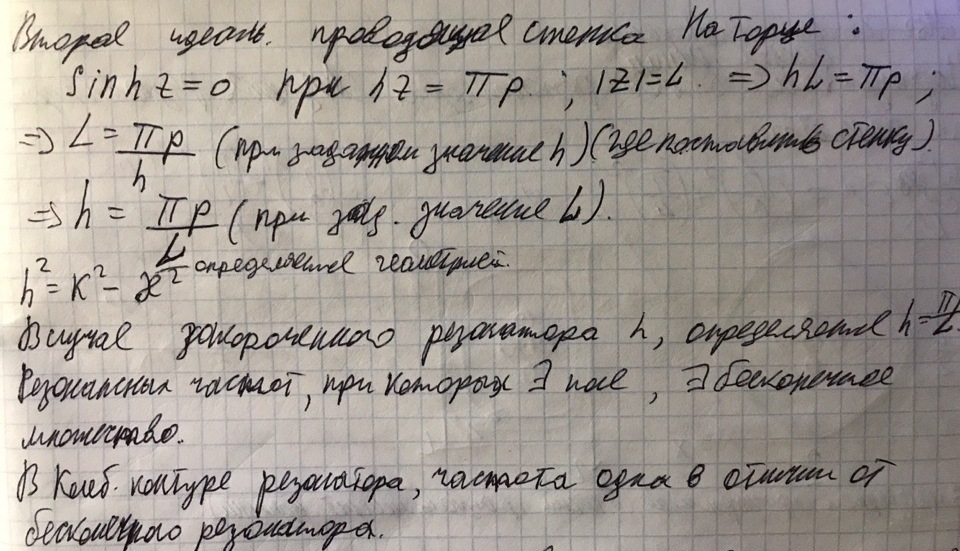 Вторая идеальн. проводящая стенка на торце :
Sin hz = 0 при hz = πp ; |z|=L. => hL = πp ;
=> L = πp/h (при заданном значение h) (где поставить стенку).
=> h = πp/L (при зад. значение L).
h² = K² - æ² определяется геометрией.
В случае закороченного резонатора h, определяется h = π/L.
Резонансных частот, при которых ∃ поле, ∃ бесконечное
множество.
В Колеб. контуре резонатора, частота одна в отличии от
бесконечного резонатора.